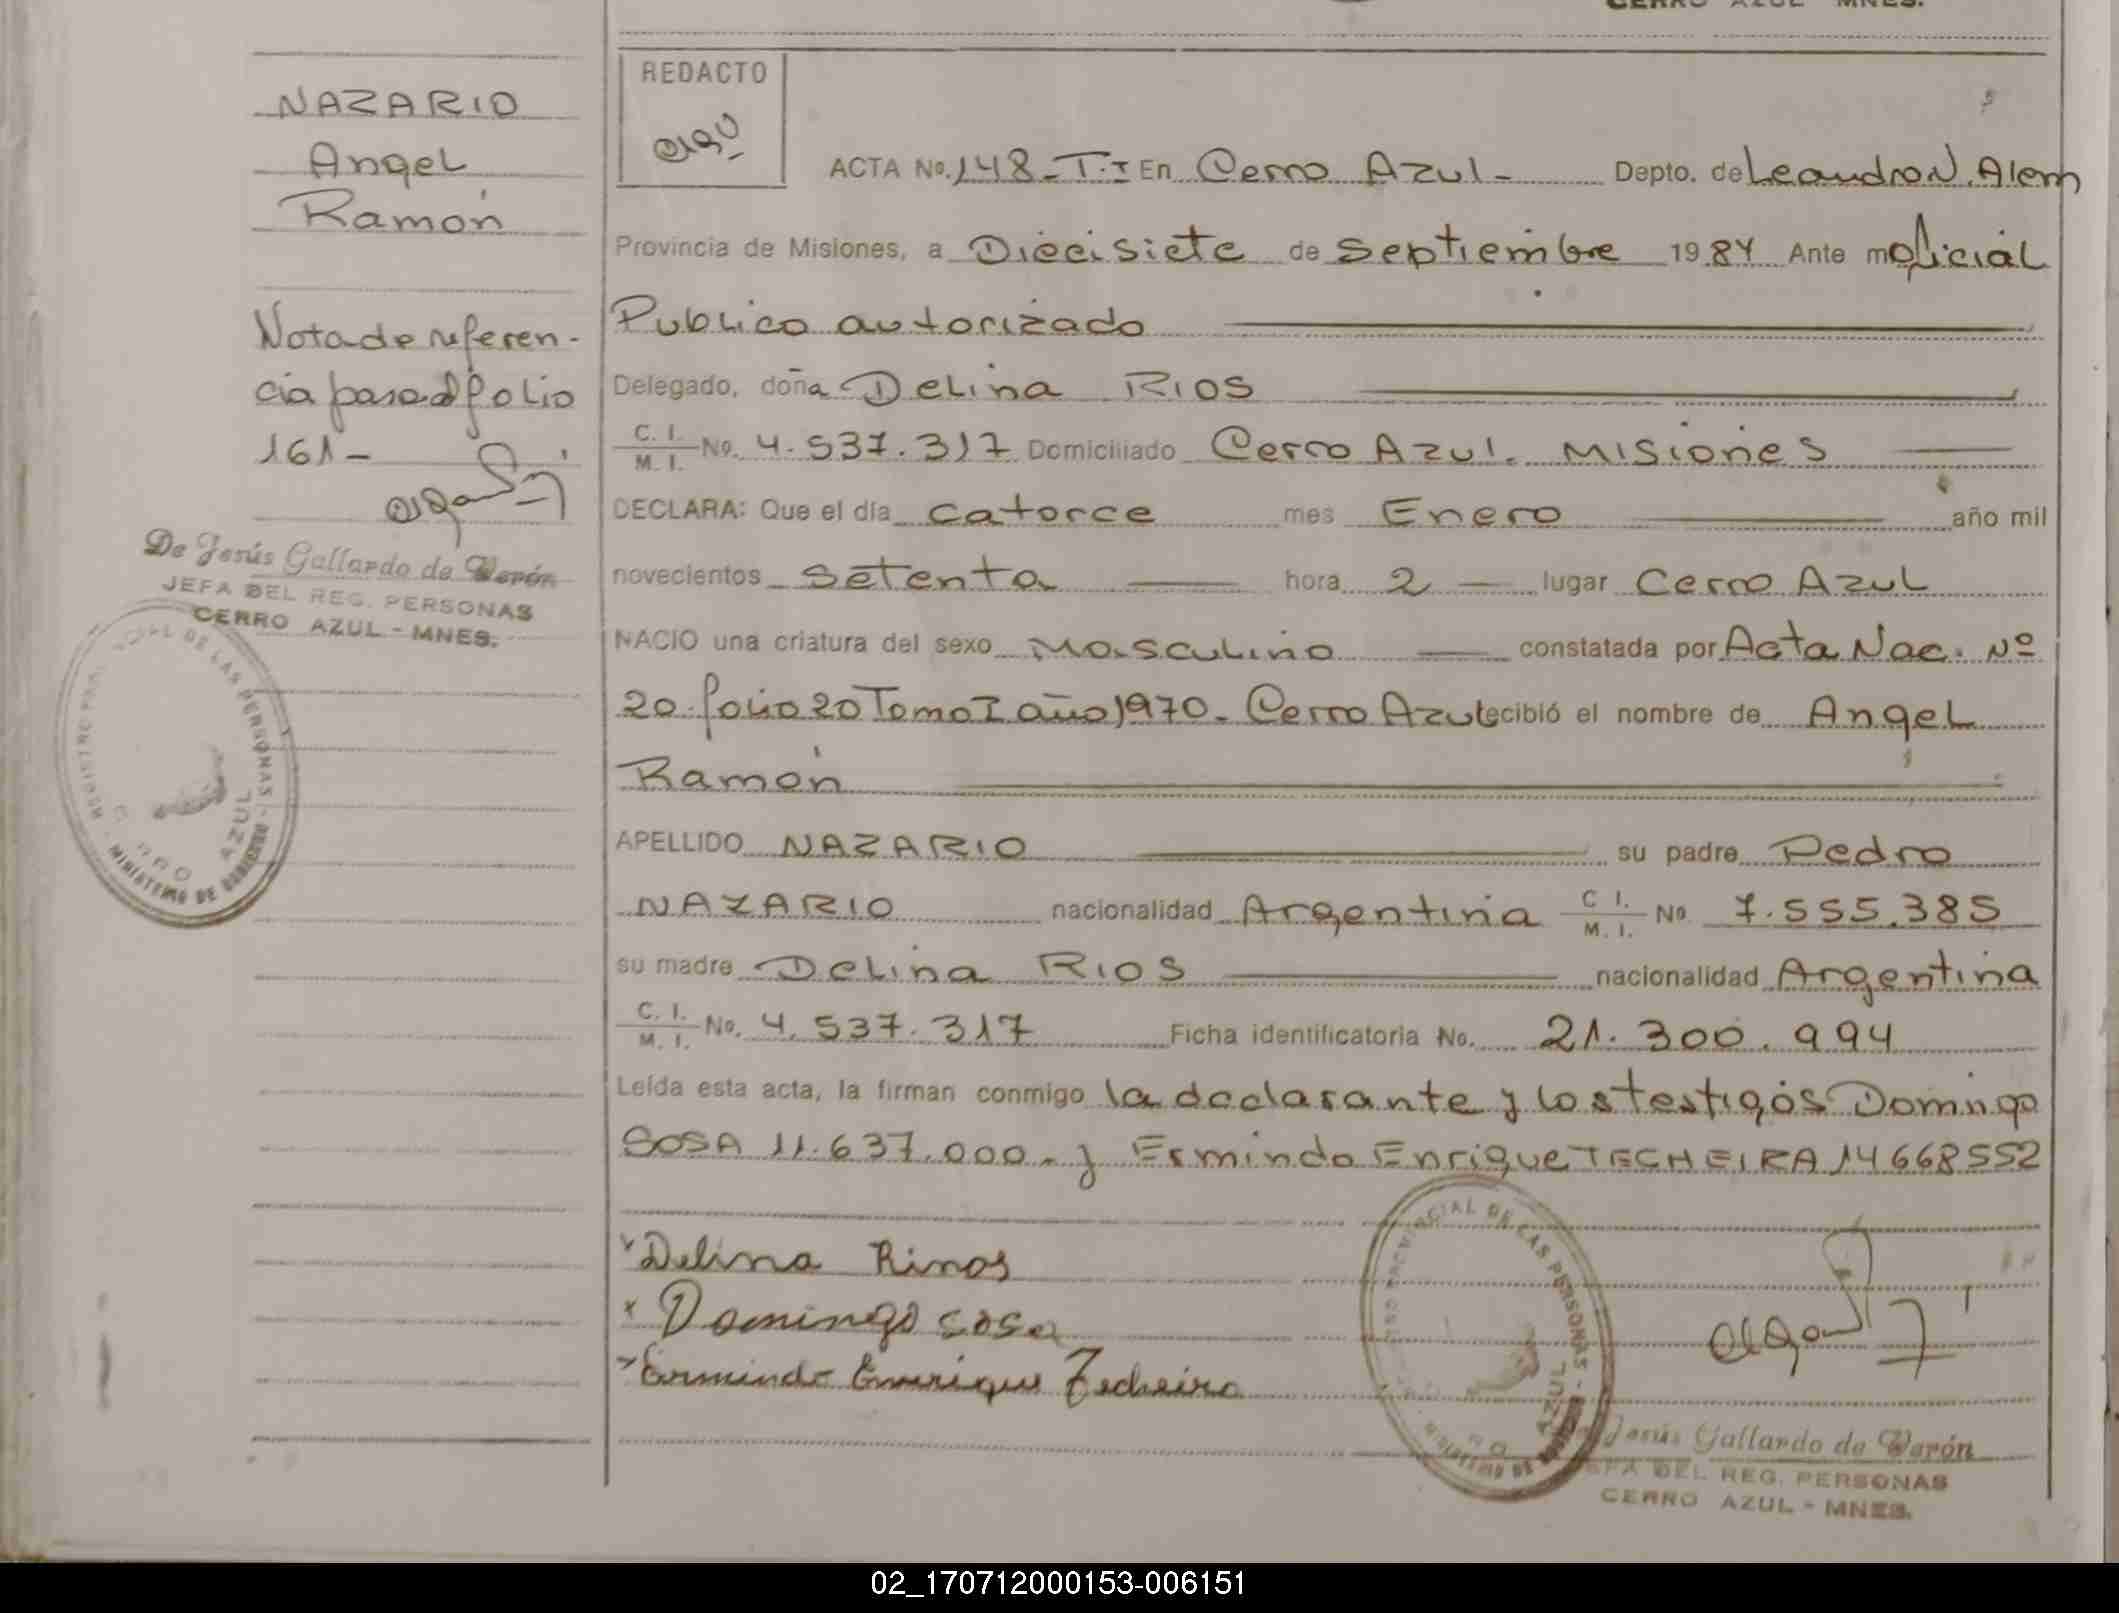 CERRO AZUL MNES.
NAZARIO
Angel
Ramón
Nota de referen-
cia pasa al folio
161-
De Jesús Gallardo de Verón
JEFA DEL REG. PERSONAS
CERRO AZUL - MNES.
REGISTRO PROVINCIAL DE LAS PERSONAS - MINISTERIO DE GOBIERNO
CERRO AZUL
REDACTO
ACTA No. 148-T.I En Cerro Azul- Depto. de Leandro N. Alem
Provincia de Misiones, a Diecisiete de Septiembre 1984 Ante mi Oficial
Publico autorizado
Delegado, doña Delina RIOS
C. I. / M. I. No. 4.537.317 Domiciliado Cerro Azul. Misiones
DECLARA: Que el día catorce mes Enero año mil
novecientos setenta hora 2 lugar Cerro Azul
NACIO una criatura del sexo Masculino constatada por Acta Nac. Nº
20. folio 20 Tomo I año 1970. Cerro Azul recibió el nombre de Angel
Ramón
APELLIDO NAZARIO su padre Pedro
NAZARIO nacionalidad Argentina C I. / M. I. No 7.555.385
su madre Delina RIOS nacionalidad Argentina
C. I. / M. I. No. 4.537.317 Ficha identificatoria No. 21.300.994
Leída esta acta, la firman conmigo la declarante y los testigos Domingo
SOSA 11.637.000.- y Ermindo Enrique TECHEIRA 14668552
Delina Rinos
Domingo sosa
Ermindo Enrrique Techeira
REGISTRO PROVINCIAL DE LAS PERSONAS - MINISTERIO DE GOBIERNO
AZUL
Jesús Gallardo de Verón
JEFA DEL REG. PERSONAS
CERRO AZUL - MNES.
02_170712000153-006151